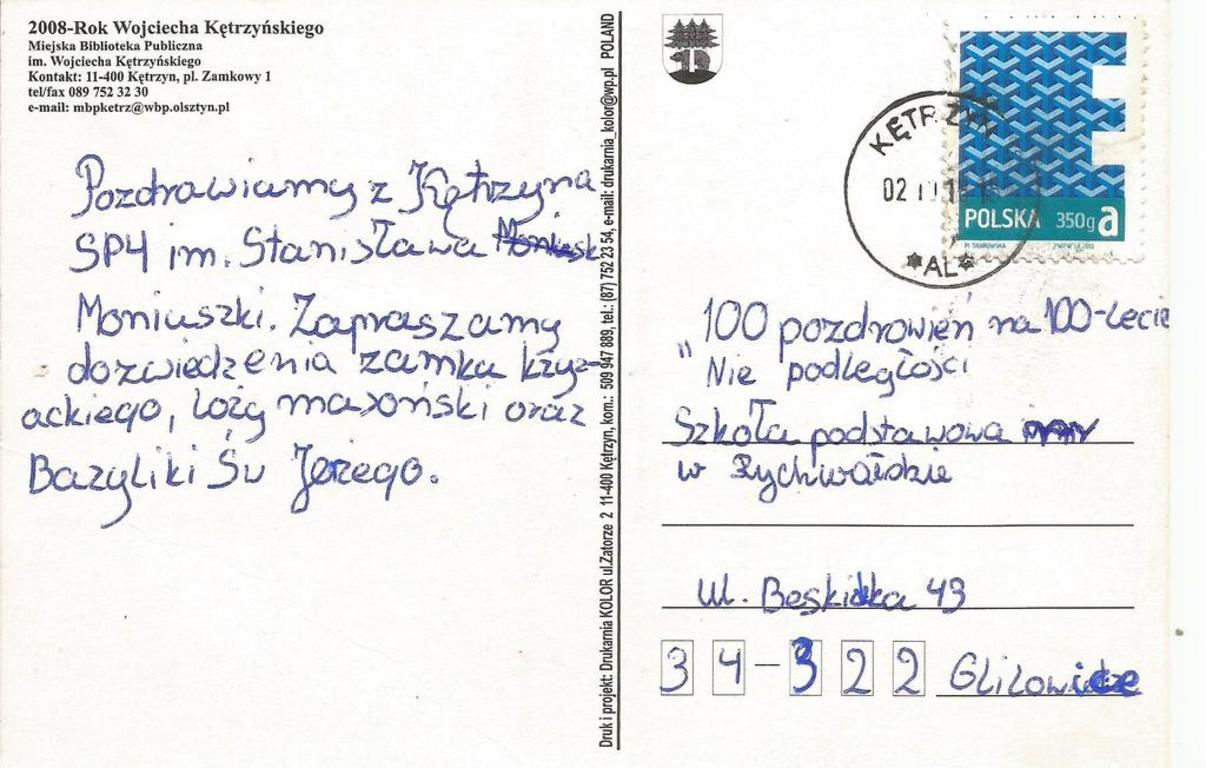 2008-Rok Wojciecha Kętrzyńskiego
Miejska Biblioteka Publiczna
im. Wojciecha Kętrzyńskiego
Kontakt: 11-400 Kętrzyn, pl. Zamkowy 1
tel/fax 089 752 32 30
e-mail: mbpketrz@wbp.olsztyn.pl
Pozdrawiamy z Kętrzyna
SP4 im. Stanisława
Moniuszki. Zapraszamy
dozwiedzenia zamka krzyż-
ackiego, loży masoński oraz
Bazyliki Św Jerzego.
Druk i projekt: Drukarnia KOLOR ul.Zatorze 2 11-400 Kętrzyn, kom.: 509 947 889, tel.: (87) 752 23 54, e-mail: drukarnia_kolor@wp.pl POLAND
KĘTRZYN
02
AL
POLSKA 350g a
"100 pozdrowień na 100-lecie
Nie podległości
Szkoła podstawowa
w Rychwałdzie
Ul. Beskidzka 43
34-322 Gilowice